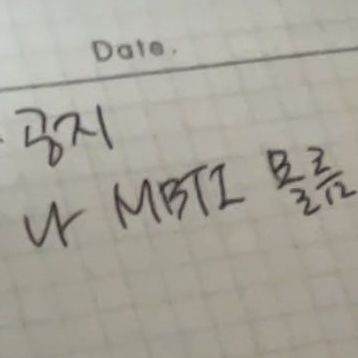 Date.
공지
나 MBTI 모름